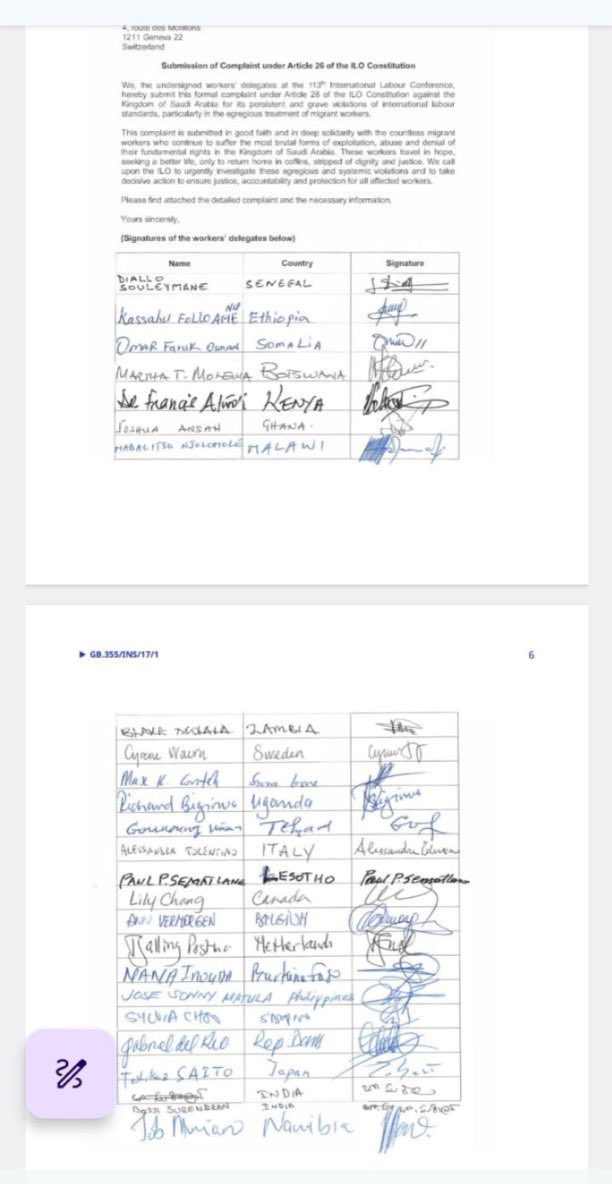 4, route des Morillons
1211 Geneva 22
Switzerland
Submission of Complaint under Article 26 of the ILO Constitution
We, the undersigned workers' delegates at the 113th International Labour Conference,
hereby submit this formal complaint under Article 26 of the ILO Constitution against the
Kingdom of Saudi Arabia for its persistent and grave violations of international labour
standards, particularly in the egregious treatment of migrant workers.
This complaint is submitted in good faith and in deep solidarity with the countless migrant
workers who continue to suffer the most brutal forms of exploitation, abuse and denial of
their fundamental rights in the Kingdom of Saudi Arabia. These workers travel in hope,
seeking a better life, only to return home in coffins, stripped of dignity and justice. We call
upon the ILO to urgently investigate these egregious and systemic violations and to take
decisive action to ensure justice, accountability and protection for all affected workers.
Please find attached the detailed complaint and the necessary information.
Yours sincerely,
(Signatures of the workers' delegates below)
Name Country Signature
DIALLO
SOULEYMANE SENEGAL
Kassahu FOLLO AME NU Ethiopia
OMAR Faruk Osman SOMALIA
MARTHA T. BOTSWANA
Francis KENYA
JOSHUA ANSAH GHANA.
MADALITSO NJOLOMOLE MALAWI
▶ GB.355/INS/17/1 6
ZAMBIA
Cyrene Sweden
Max K.
Richard Bigirwa Uganda
Tchad
ALESSANDRA TOLENTINO ITALY Alessandra
PAUL P. SEMATLANE LESOTHO Paul P. Sematlane
Lily Chang Canada
ANN VERMORGEN BELGIUM
Tjalling Postma Netherlands
NANA Burkina Faso
JOSE SONNY MATULA Philippines
SYLVIA
gabriel del Rio Rep Dom
SAITO Japan
INDIA
SURENDRAN INDIA
Job Namibia